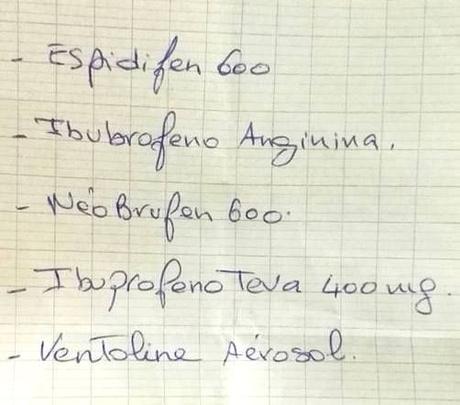 - Espidifen 600
- Ibubrofeno Anginina.
- NéoBrufen 600.
- Ibuprofeno Teva 400 mg.
- Ventoline Aérosol.